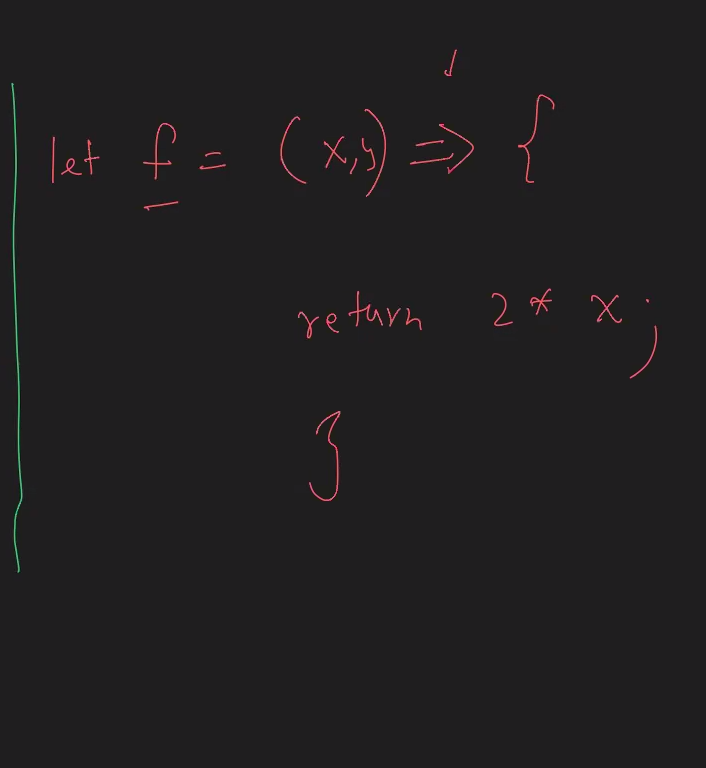 let f = (x,y) => {
return 2 * x;
}